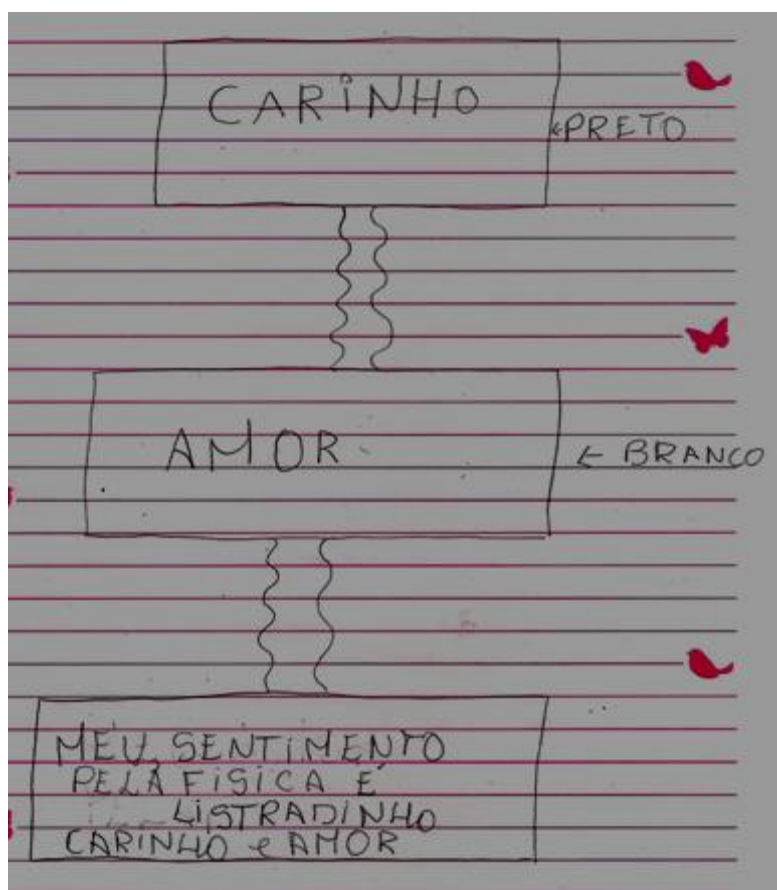 CARINHO
←PRETO
AMOR
← BRANCO
MEU SENTIMENTO
PELA FÍSICA É
LISTRADINHO
CARINHO e AMOR